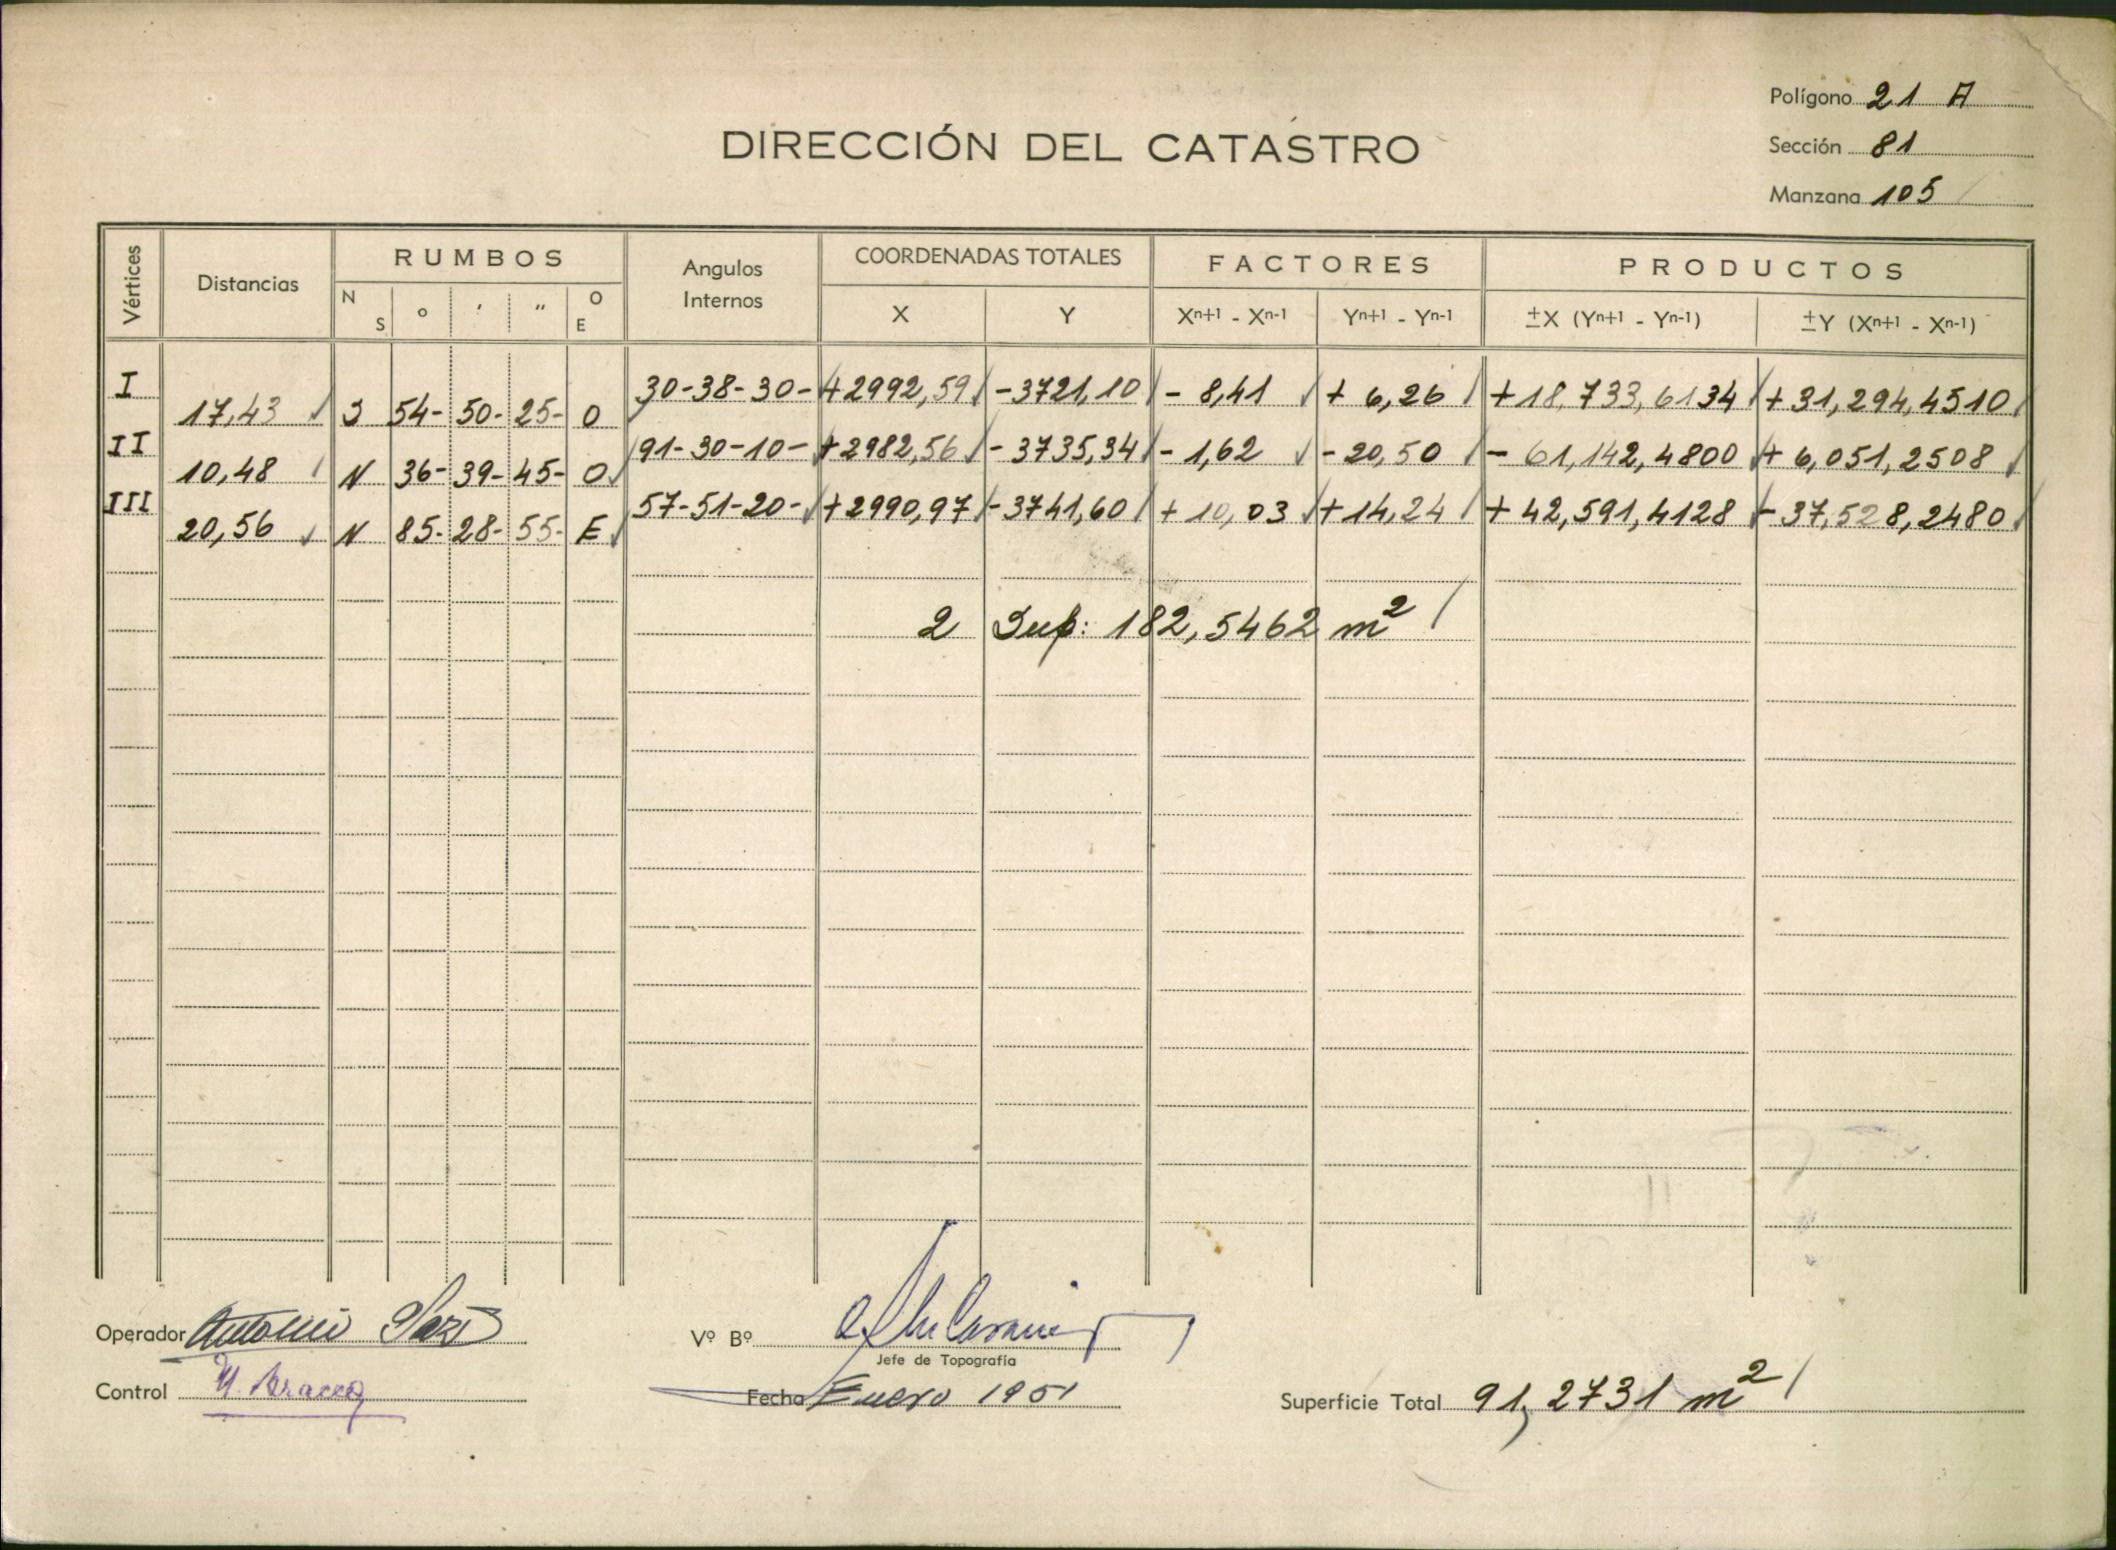 Polígono 21 A
DIRECCIÓN DEL CATASTRO
Sección 81
Manzana 105
Vértices Distancias RUMBOS Angulos Internos COORDENADAS TOTALES FACTORES PRODUCTOS
N S ° ′ ″ O E X Y Xn+1 - Xn-1 Yn+1 - Yn-1 ±X (Yn+1 - Yn-1) ±Y (Xn+1 - Xn-1)
I 30-38-30- +2992,59 -3721,10 - 8,41 + 6,26 +18,733,6134 +31,294,4510
17,43 S 54- 50- 25- O
II 91-30-10- +2982,56 -3735,34 - 1,62 -20,50 - 61,142,4800 + 6,051,2508
10,48 N 36- 39- 45- O
III 57-51-20- +2990,97 -3741,60 + 10,03 +14,24 + 42,591,4128 - 37,528,2480
20,56 N 85- 28- 55- E
2 Sup: 182,5462 m²
Operador Antonio
Vº Bº
Jefe de Topografía
Control
Fecha Enero 1951
Superficie Total 91,2731 m²